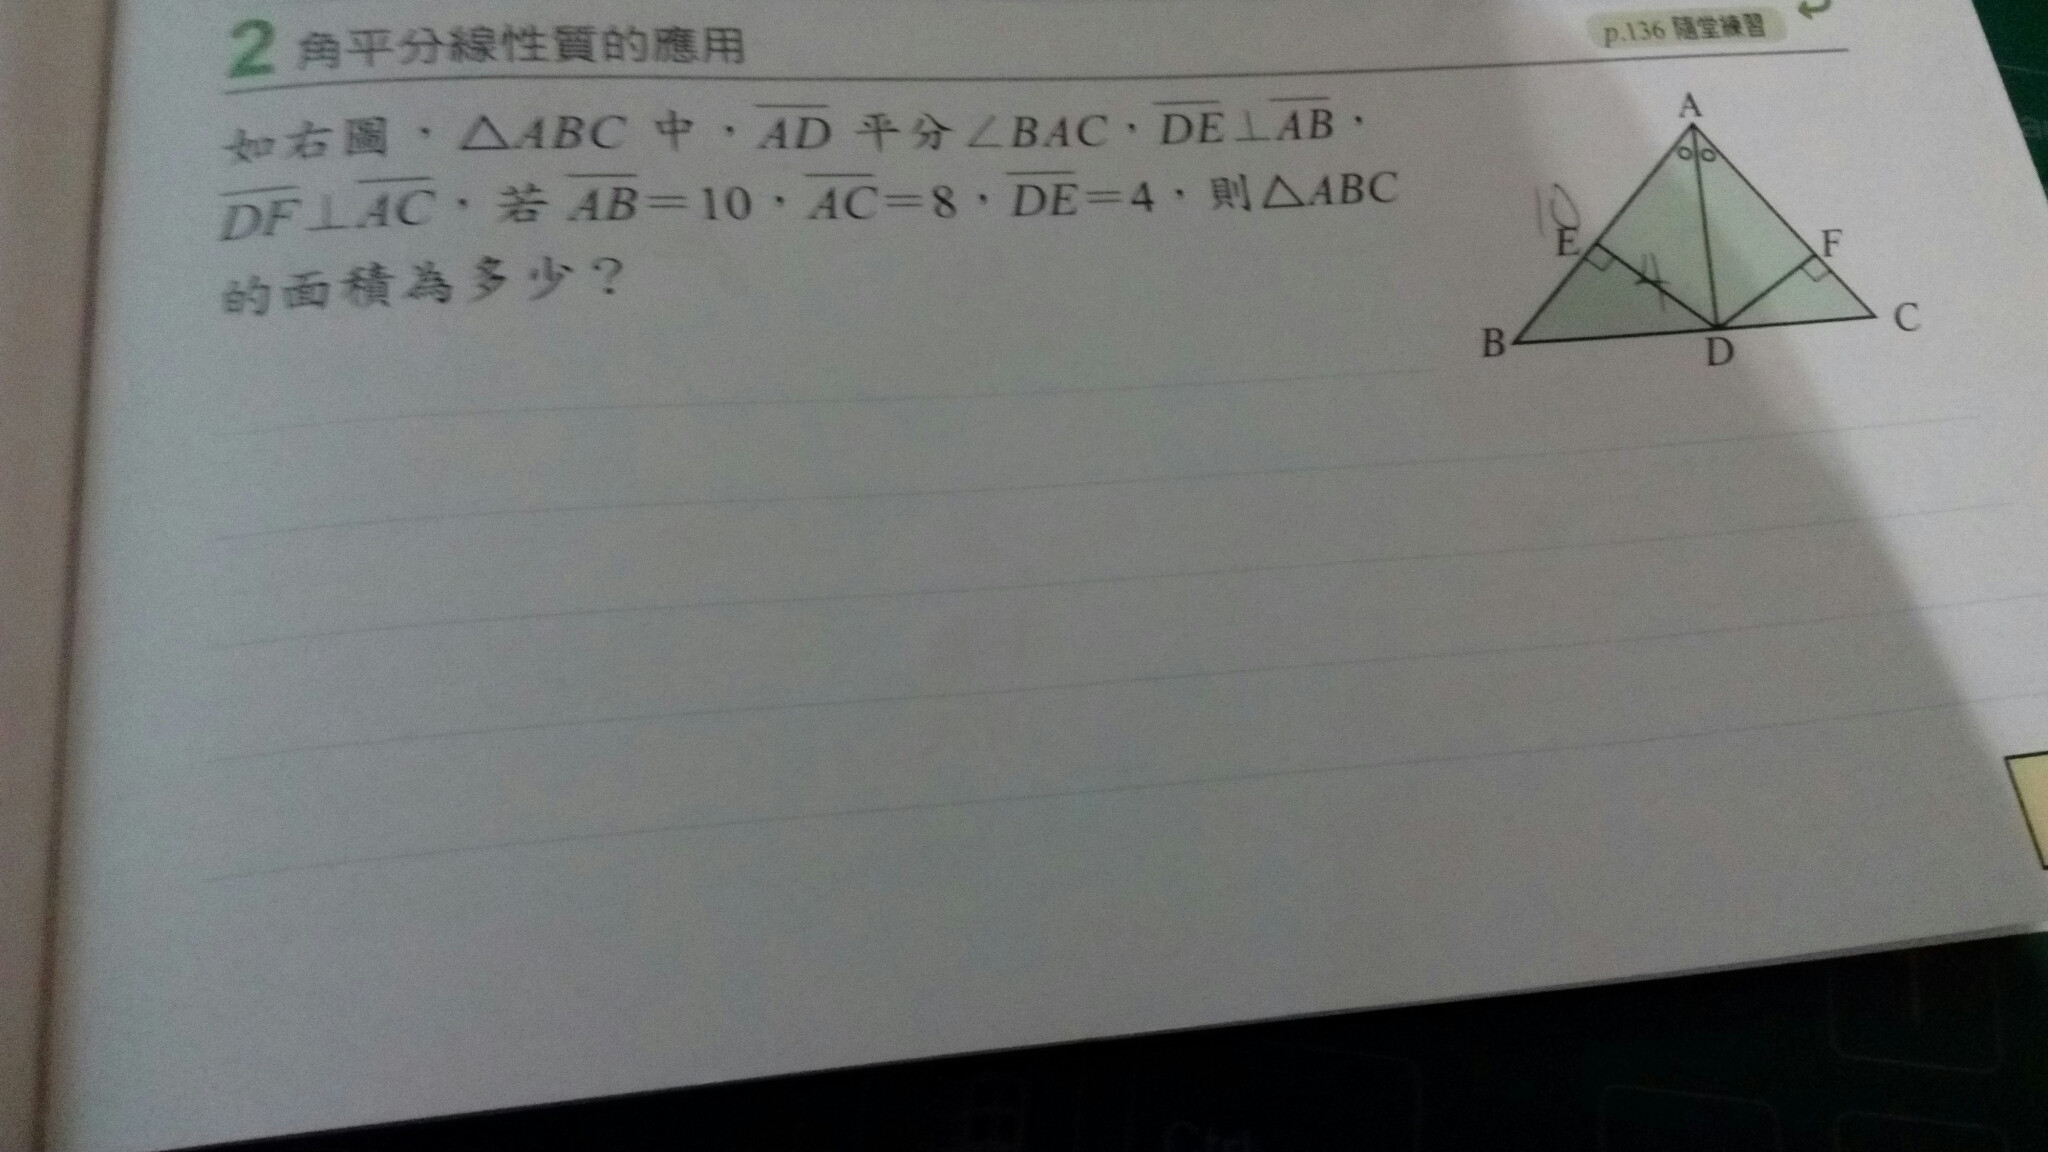 2 角平分線性質的應用
p.136 隨堂練習
如右圖，△ABC 中，AD 平分∠BAC，DE⊥AB，
DF⊥AC，若 AB＝10，AC＝8，DE＝4，則△ABC
的面積為多少？
A
10
E
F
4
B
D
C
Ctrl